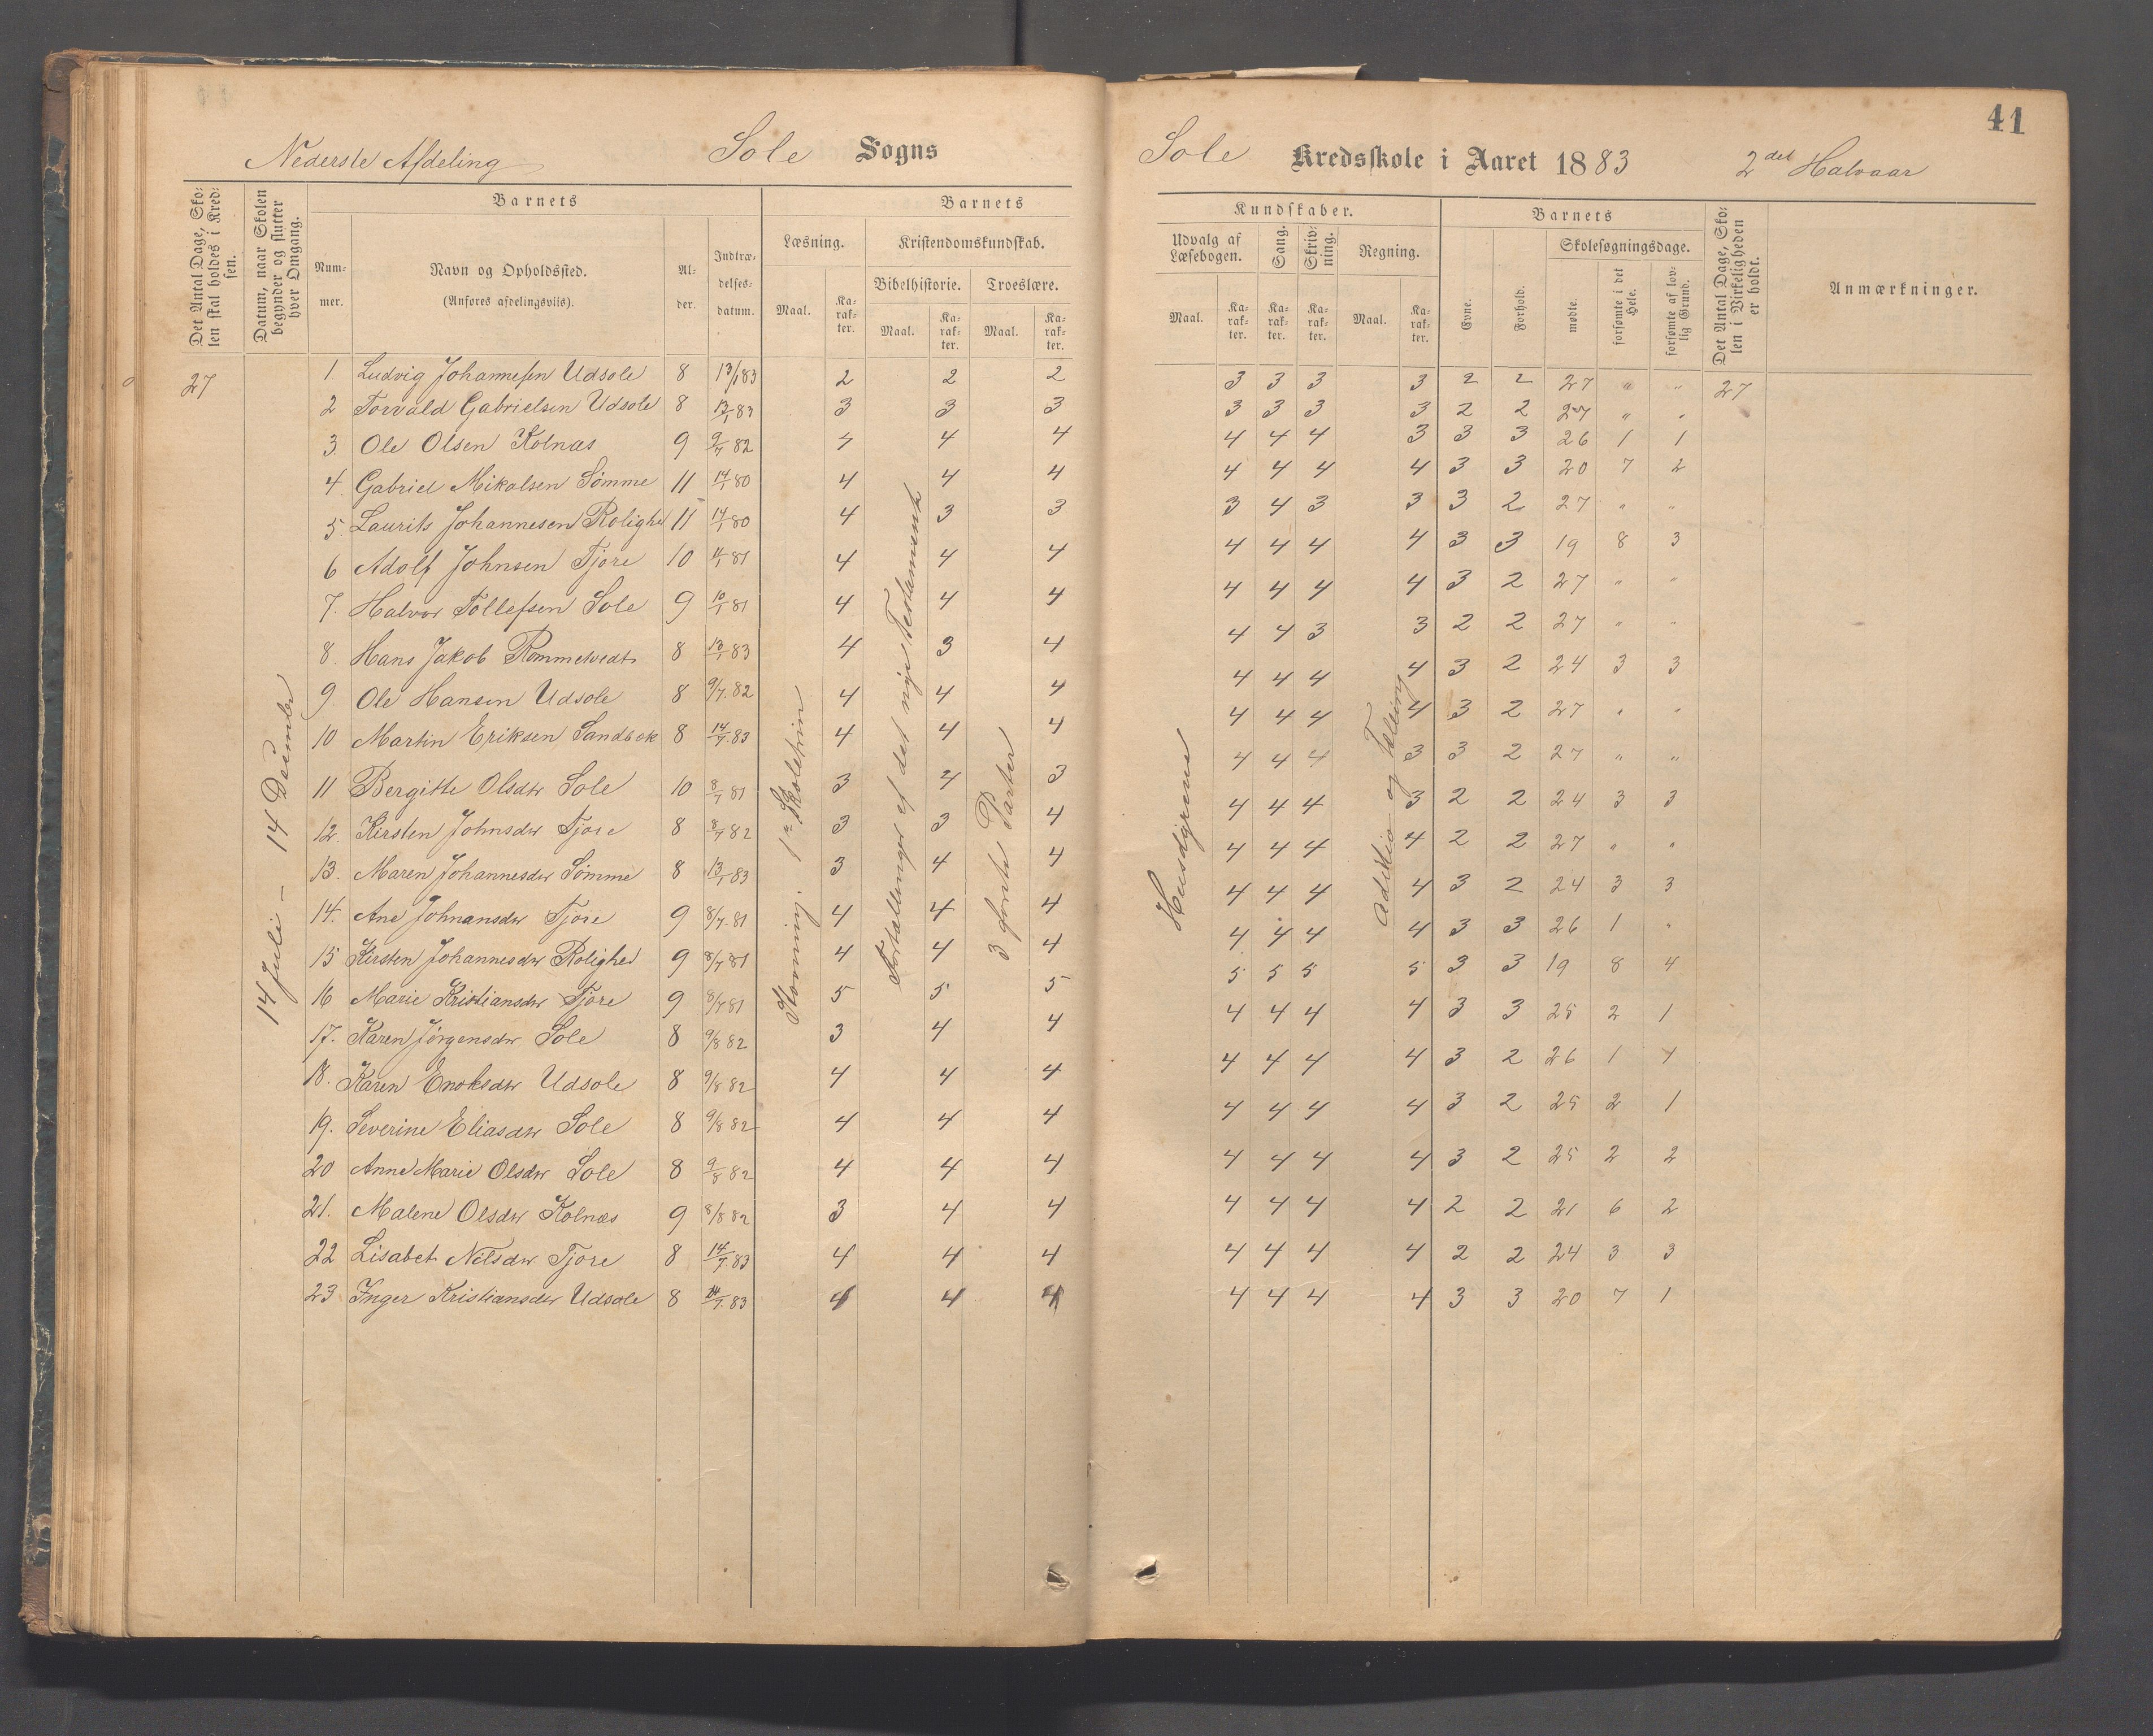 41
Nederste Afdeling Sole Sogns
Sole Kredsskole i Aaret 1883 2det Halvaar
Det Antal Dage, Skolen skal holdes i Kredsen.
Datum, naar Skolen begynder og slutter hver Omgang.
Barnets
Nummer.
Navn og Opholdssted.
(Anføres afdelingsviis).
Alder.
Indtrædelsesdatum.
Barnets
Læsning. Kristendomskundskab.
Bibelhistorie. Troeslære.
Maal. Karakter. Maal. Karakter. Maal. Karakter.
Kundskaber.
Udvalg af Læsebogen. Sang. Skrivning. Regning.
Maal. Karakter. Karakter. Karakter. Maal. Karakter.
Barnets
Evne. Forhold. Skolesøgningsdage.
mødte. forsømte i det Hele. forsømte af lovlig Grund.
Det Antal Dage, Skolen i Virkeligheden er holdt.
Anmærkninger.
27
14 Juli – 14 December
Stavning. 1ste Skoletrin
Fortællinger af det nye Testamente
3 første Parter
Husdyrene
Addition og Tælling
1 Ludvig Johannesen Udsole 8 13/1 83 2 2 2 3 3 3 3 2 2 27 " " 27
2 Torvald Gabrielsen Udsole 8 13/1 83 3 3 3 3 3 3 3 2 2 27 " "
3. Ole Olsen Kolnæs 9 9/7 82 4 4 4 4 4 4 3 3 3 26 1 1
4. Gabriel Mikalsen Sømme 11 14/1 80 4 4 4 4 4 4 4 3 3 20 7 2
5. Laurits Johannesen Rolighed 11 14/1 80 4 3 3 3 4 3 3 3 2 27 " "
6 Adolf Johnsen Tjore 10 11/1 81 4 4 4 4 4 4 4 3 3 19 8 3
7. Halvor Tollefsen Sole 9 10/1 81 4 4 4 4 4 4 4 3 2 27 " "
8. Hans Jakob Rommetvedt 8 13/1 83 4 3 4 4 4 3 3 2 2 27 " "
9. Ole Hansen Udsole 8 9/7. 82 4 4 4 4 4 4 4 3 2 24 3 3
10 Martin Eriksen Sandbek 8 14/7. 83 4 4 4 4 4 4 4 3 2 27 " "
11 Bergitte Olsdtr Sole 10 8/7 81 3 4 3 4 4 4 3 3 2 27 " "
12. Kirsten Johnsdtr Tjore 8 8/7 82 3 3 4 4 4 4 3 2 2 24 3 3
13. Maren Johannesdtr Sømme 8 13/1 83 3 4 4 4 4 4 4 2 2 27 " "
14. Ane Johnansdtr Tjore 9 8/7. 81 4 4 4 4 4 4 4 3 2 24 3 3
15 Kirsten Johannesdtr Rolighed 9 8/7 81 4 4 4 4 4 4 4 3 3 26 1 "
16 Marie Kristiansdtr Tjore 9 8/7 81 5 5 5 5 5 5 5 3 3 19 8 4
17. Karen Jørgensdtr Sole 8 9/8 82 3 4 4 4 4 4 4 3 3 25 2 1
18. Karen Enoksdtr Udsole 8 9/8 82 4 4 4 4 4 4 4 3 2 26 1 1
19. Severine Eliasdtr Sole 8 9/8 82 4 4 4 4 4 4 4 3 2 25 2 1
20 Anne Marie Olsdtr Sole 8 9/8 82 4 4 4 4 4 4 4 3 2 25 2 2
21. Malene Olsdtr Kolnæs 9 8/8 82 3 4 4 4 4 4 4 2 2 21 6 2
22 Lisabet Nilsdtr Tjore 8 14/7. 83 4 4 4 4 4 4 4 2 2 24 3 3
23 Inger Kristiansdtr Udsole 8 14/7. 83 4 4 4 4 4 4 4 3 3 20 7 1